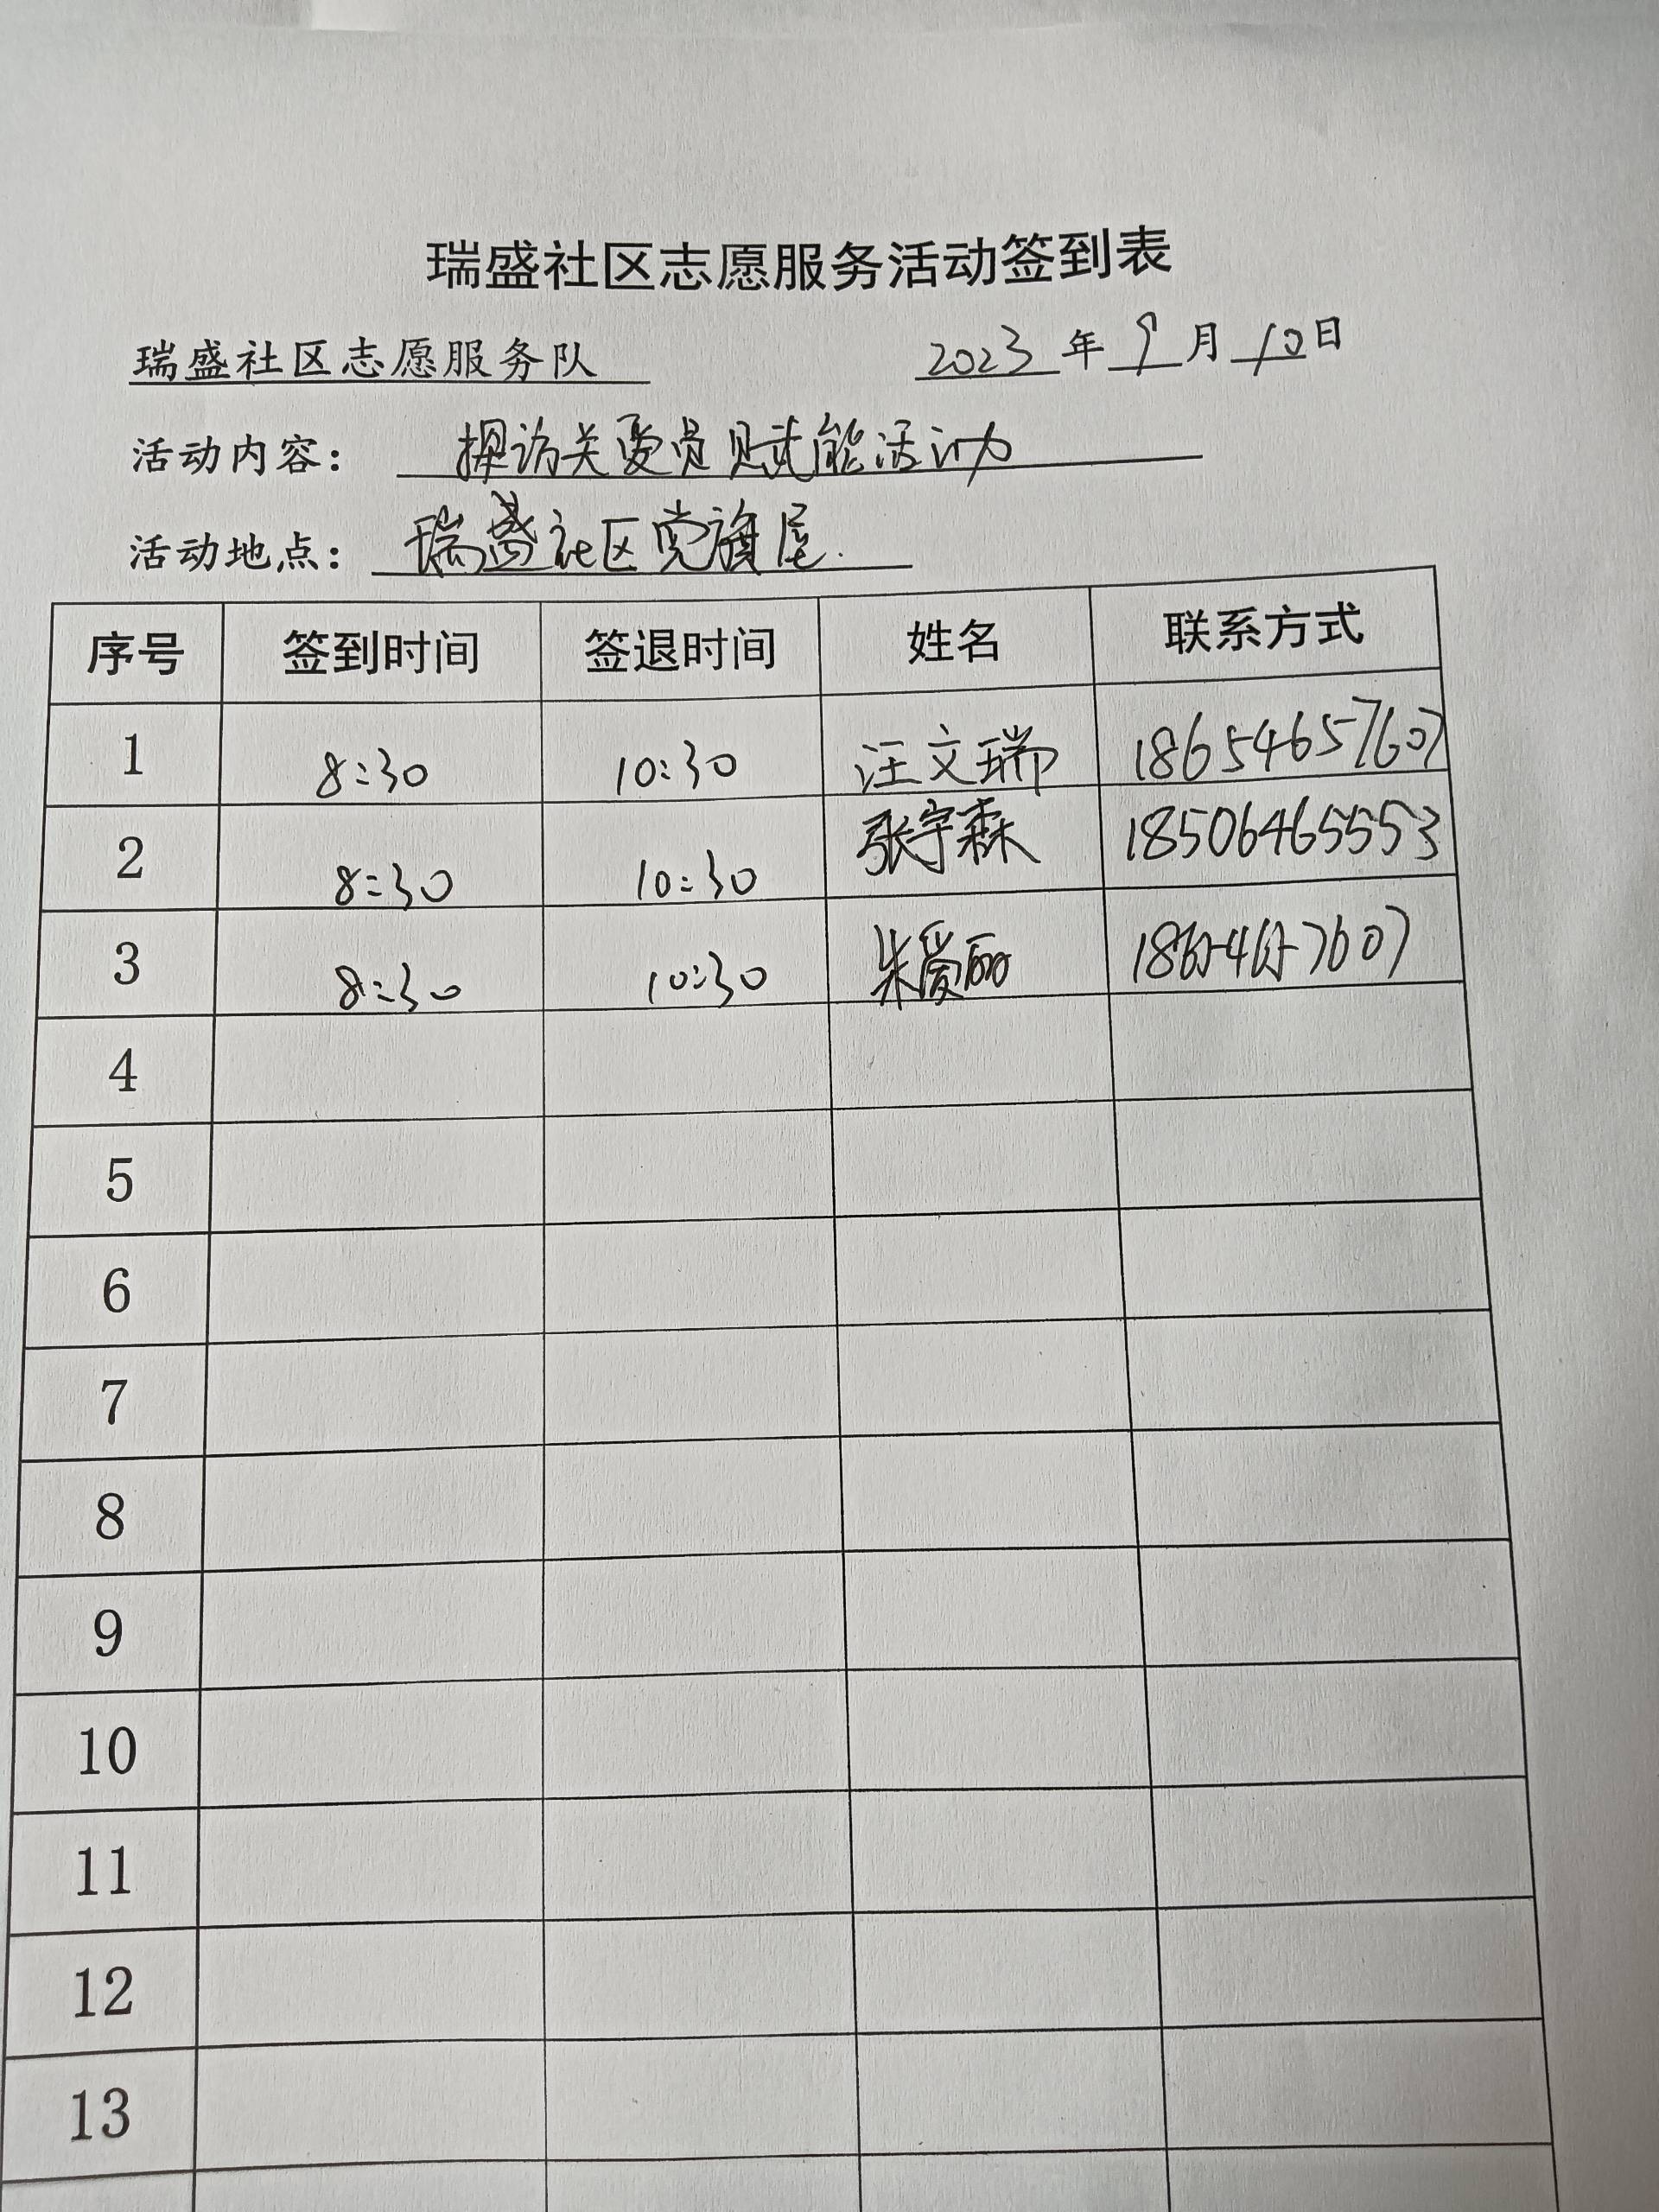 瑞盛社区志愿服务活动签到表
瑞盛社区志愿服务队 2023 年 9 月 10 日
活动内容： 探访关爱员赋能活动
活动地点： 瑞盛社区党旗屋.
序号 签到时间 签退时间 姓名 联系方式
1 8:30 10:30 汪文瑞 18654657607
2 8:30 10:30 张宇森 18506465553
3 8:30 10:30 朱爱丽 18654657607
4
5
6
7
8
9
10
11
12
13